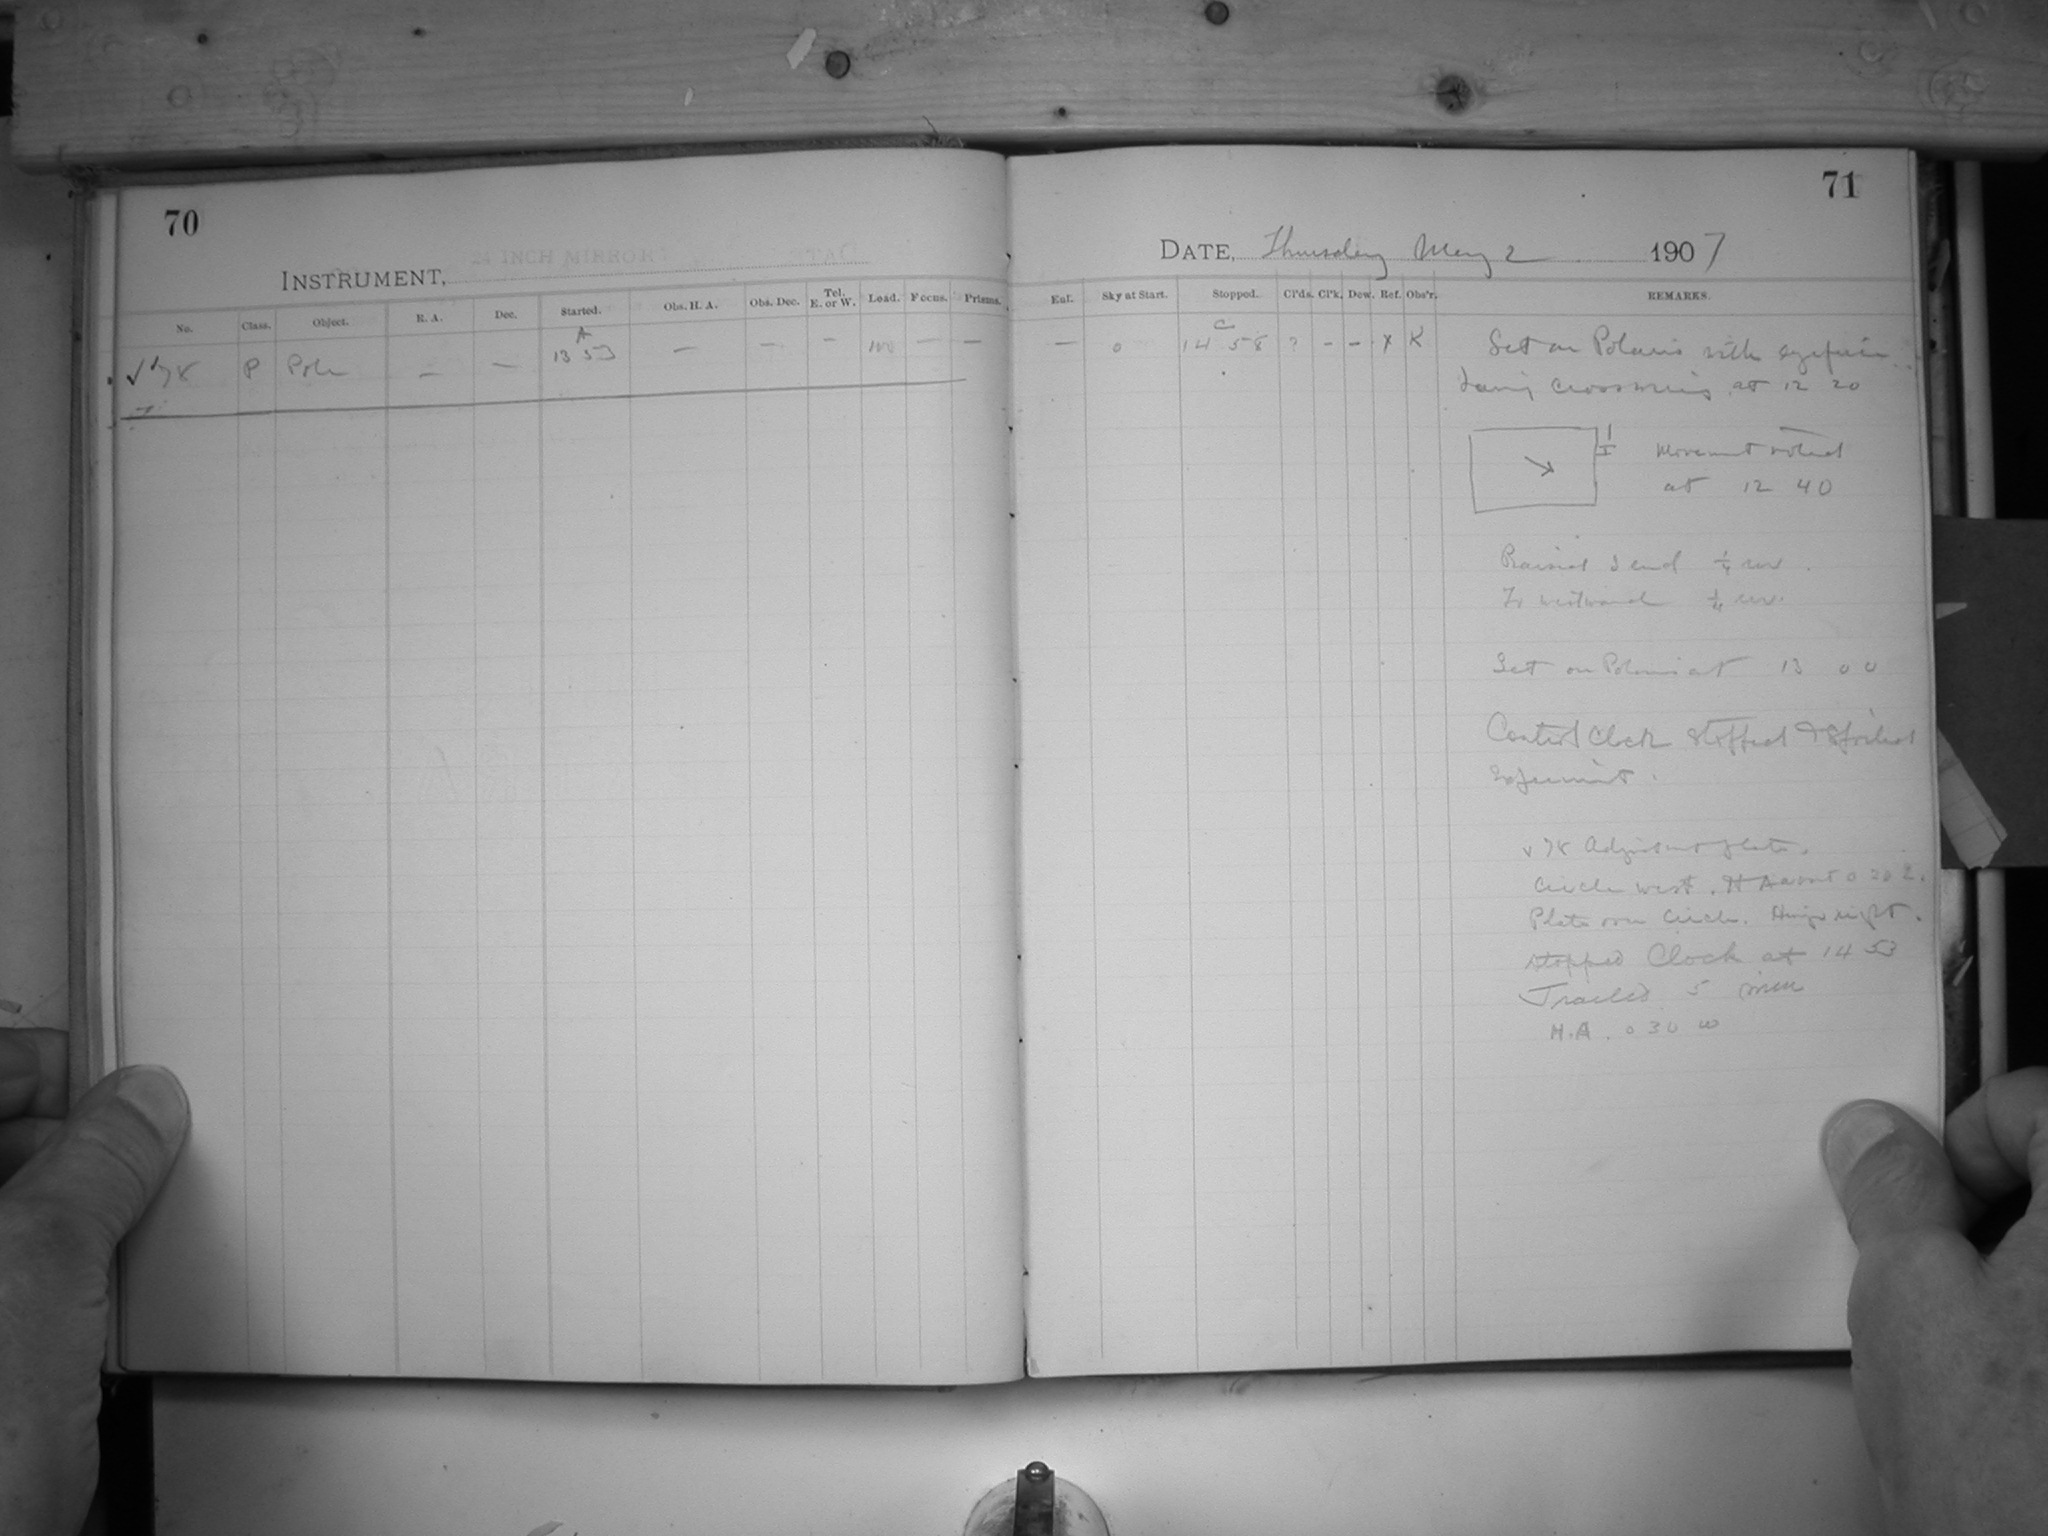 70
INSTRUMENT,
24 INCH MIRROR
No. Class. Object. R. A. Dec. Started. Obs. H. A. Obs. Dec. Tel. E. or W. Load. Focus. Prisms.
A
78 P Pole — — 13 53 — — — — —
71
DATE, Thursday May 2 1907
Exf. Sky at Start. Stopped. Cl'ds. Cl'k. Dew. Ref. Obs'r. REMARKS.
C
— 0 14 58 ? - - x K
Set on Polaris with eyepiece
at 12 20
Movement noted
at 12 40
Raised S end 1/4 rev.
To westward 1/4 rev.
Set on Polaris at 13 00
Control Clock stopped & spoiled
Experiment.
78 Adjustment plate.
Circle west. H A about 0 20
Plate over circle. Hinge right.
stopped Clock at 14 53
Trailed 5 min
H.A. 0 30 W